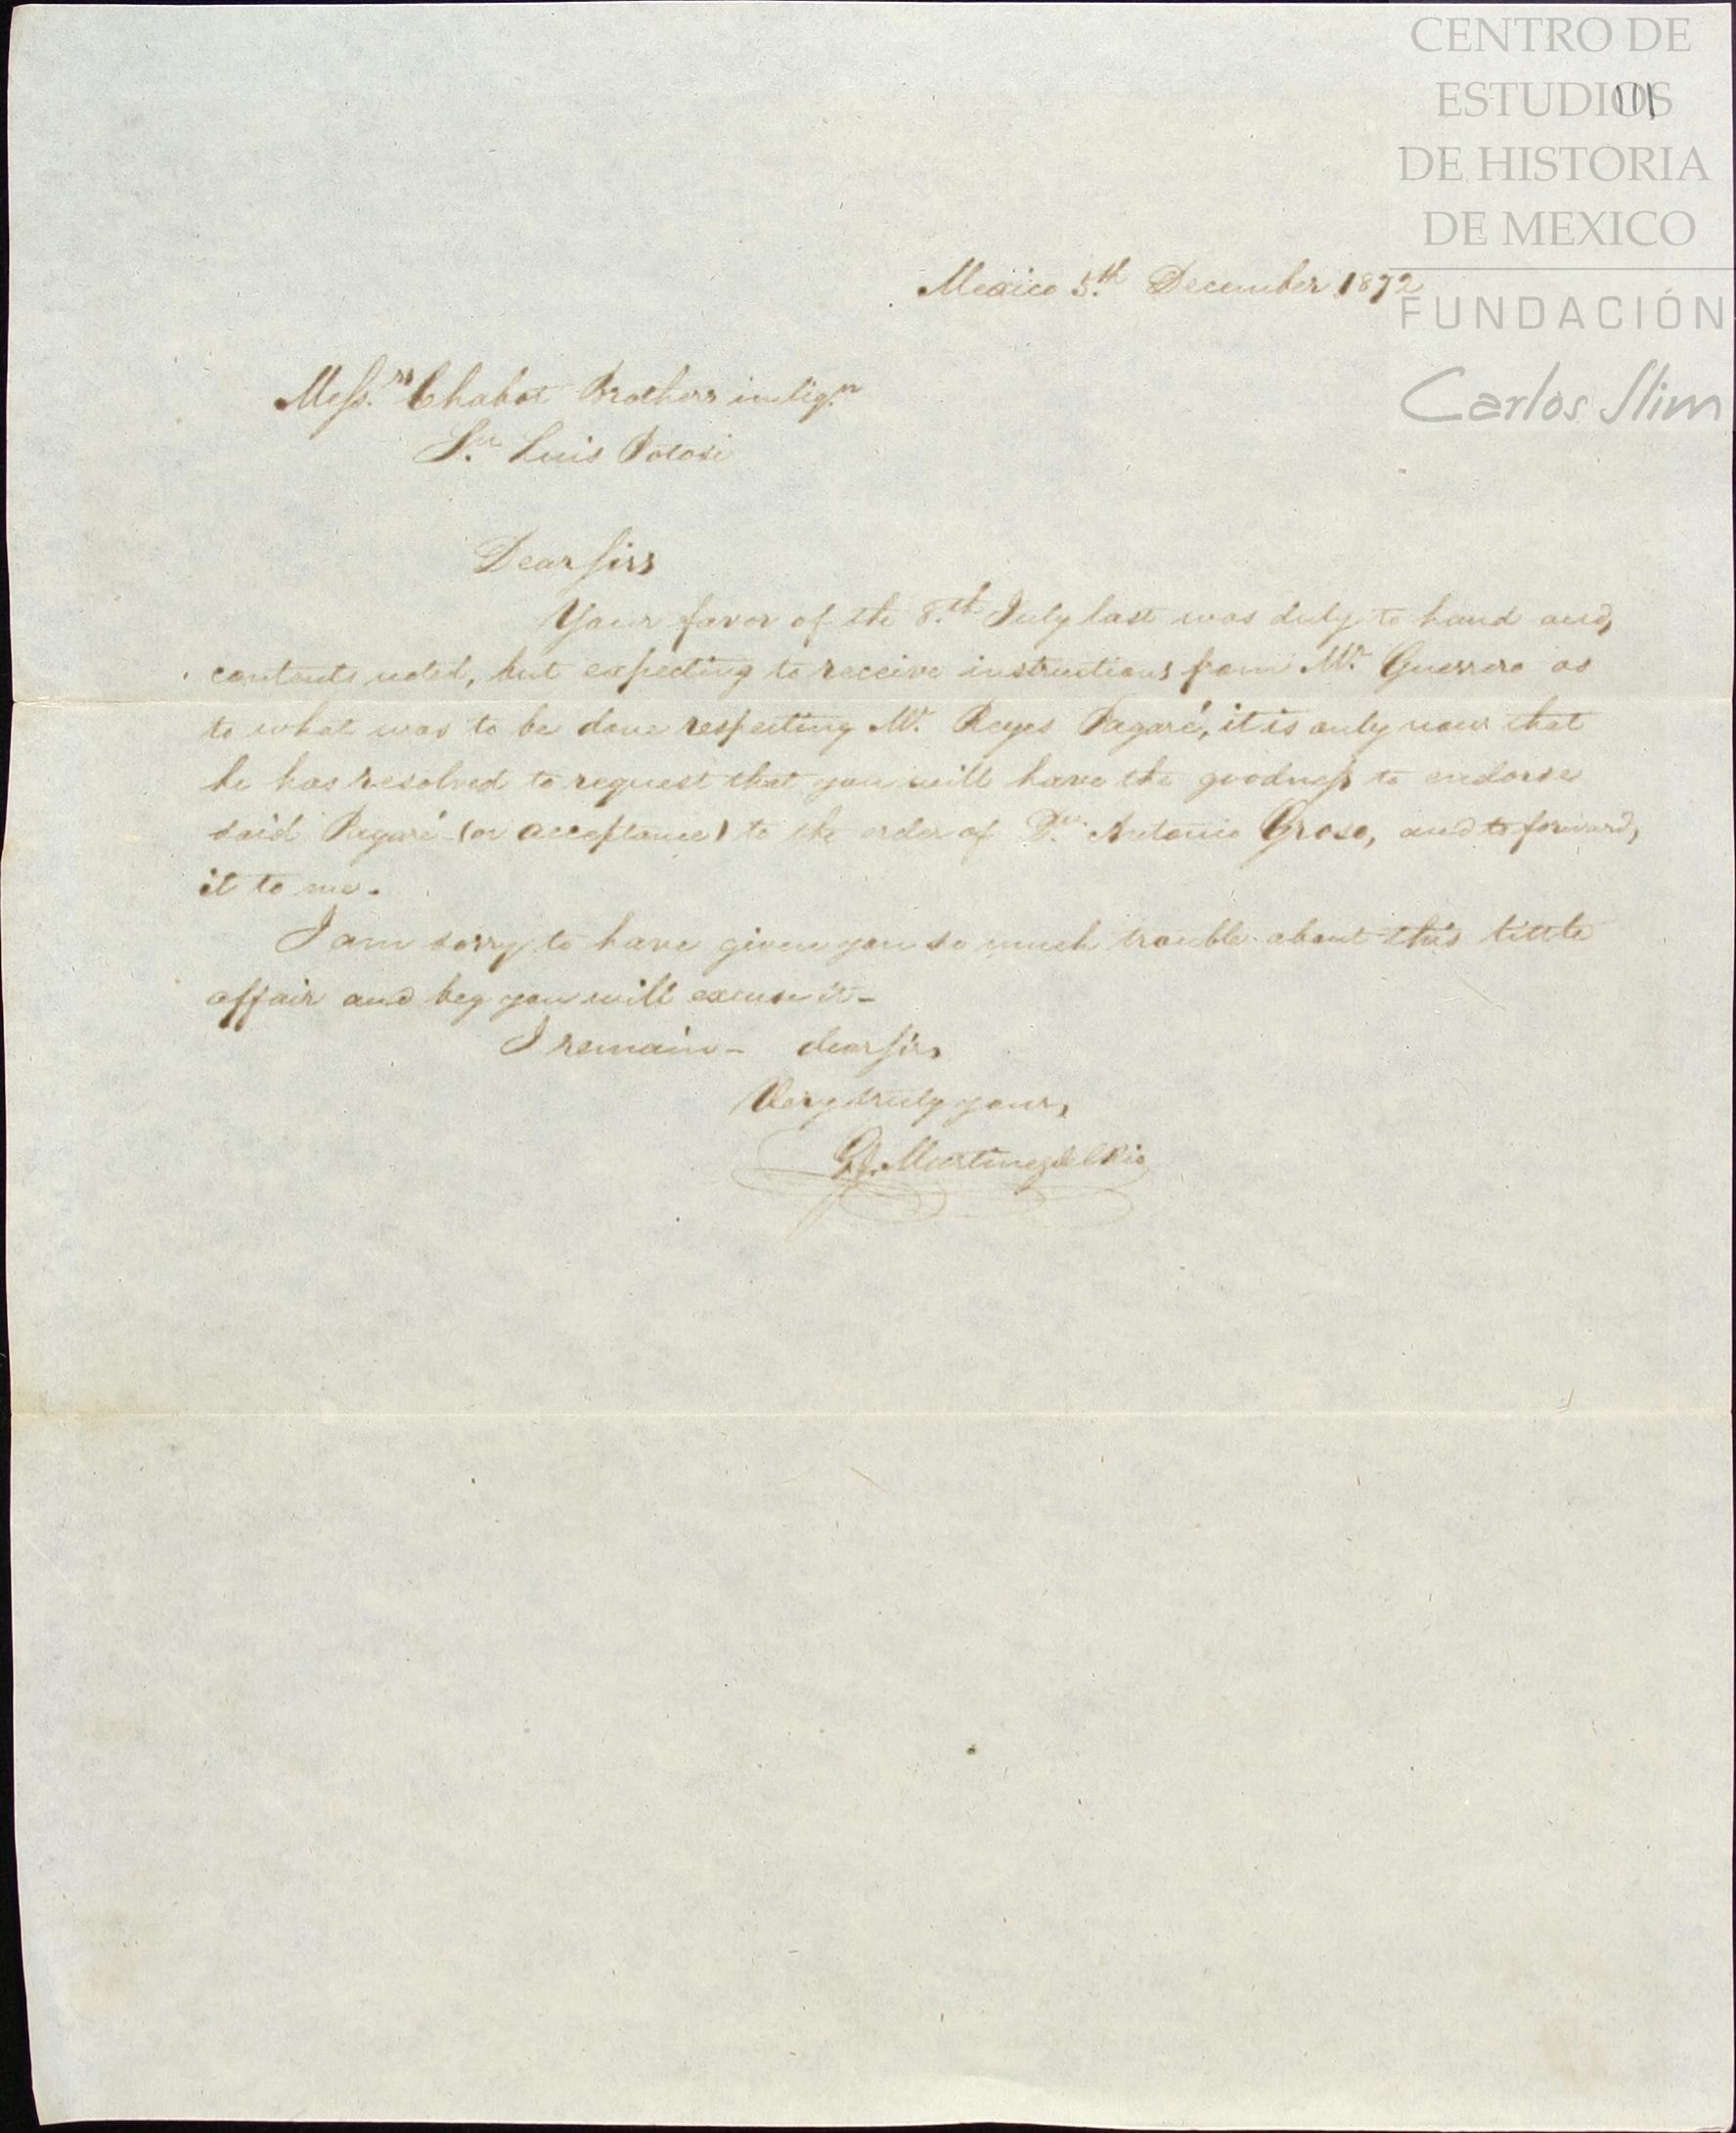 CENTRO DE
ESTUDIOS
111
DE HISTORIA
DE MEXICO
FUNDACIÓN
Carlos Slim
Mexico 5.th December 1872
Mess.rs Chabot Brothers in liq.n
S.n Luis Potosi
Dear Sirs
Your favor of the 8.th July last was duly to hand and,
contents noted, but expecting to receive instructions from Mr. Guerrero as
to what was to be done respecting Mr. Reyes Pagaré, it is only now that
he has resolved to request that you will have the goodness to endorse
said Pagaré (or acceptance) to the order of D.n Antonio Groso, and to forward,
it to me.
I am sorry to have given you so much trouble about this little
affair and beg you will excuse it-
I remain- dear sirs
Very truly yours,
Martinez del Rio